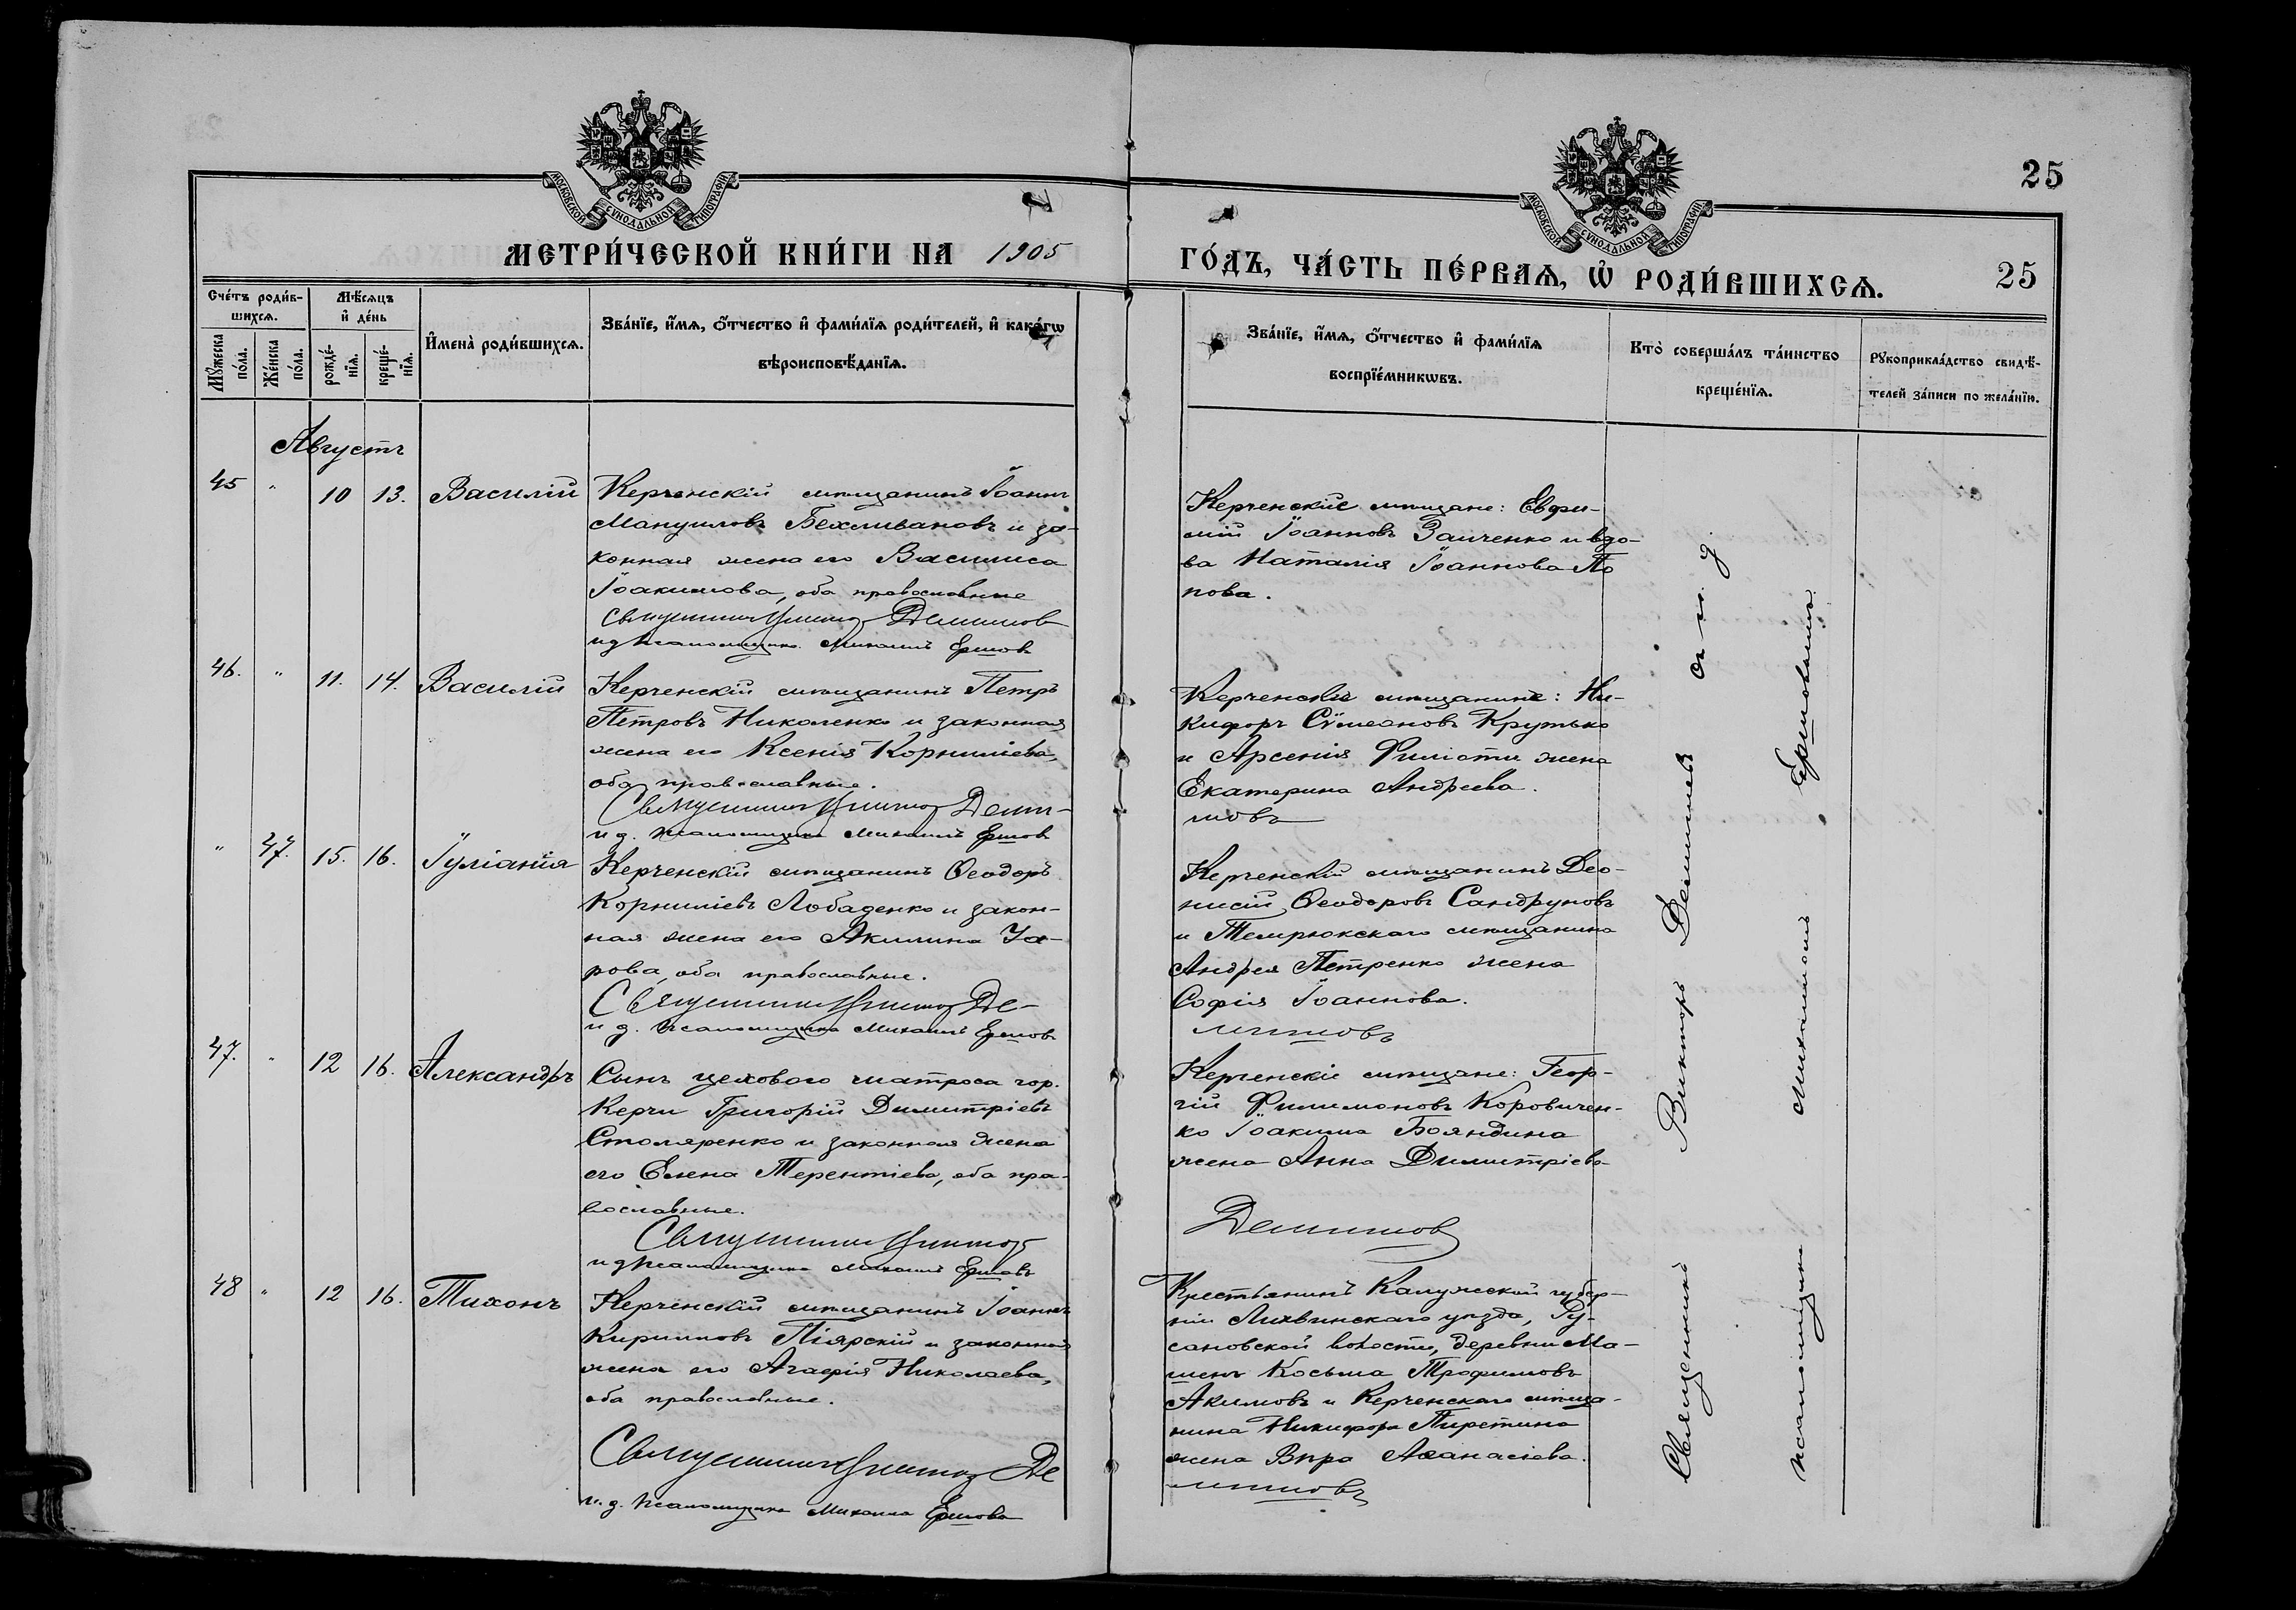 МОСКОВСКОЙ СѴНОДАЛЬНОЙ ТИПОГРАФІИ
МОСКОВСКОЙ СѴНОДАЛЬНОЙ ТИПОГРАФІИ
25
МЕТРИ́ЧЕСКОЙ КНИ́ГИ НА 1905
ГО́ДЪ, ЧА́СТЬ ПЕ́РВАѦ, Ѡ҆ РОДИ́ВШИХСѦ.
25
Сче́тъ роди́в-
шихсѧ.
Мꙋ́жеска
по́ла.
Же́нска
по́ла.
Мѣ́сѧцъ
и҆ де́нь
рожде́-
нїѧ.
креще́-
нїѧ.
И҆мена̀ роди́вшихсѧ.
Зва́нїе, и҆́мѧ, ѻ҆́тчество и҆ фами́лїѧ роди́телей, и҆ како́гѡ
вѣроисповѣ́данїѧ.
Зва́нїе, и҆́мѧ, ѻ҆́тчество и҆ фами́лїѧ
воспрїе́мникѡвъ.
Кто̀ соверша́лъ та́инство
креще́нїѧ.
Рꙋкоприкла́дство свидѣ́-
телей за́писи по жела́нїю.
Августъ
45 " 10 13. Василій
Керченскій мѣщанинъ Іоаннъ
Мануиловъ Бехливановъ и за-
конная жена его Василиса
Іоакимова, оба православные
Священникъ Викторъ Демишовъ
и д псаломщика Михаилъ Ершовъ
Керченскіе мѣщане: Евфи-
мій Іоанновъ Заиченко и вдо-
ва Наталія Іоаннова По
пова.
46. " 11. 14. Василій
Керченскій мѣщанинъ Петръ
Петровъ Николенко и законная
жена его Ксенія Корниліева,
оба православные.
Священникъ Викторъ Деми-
и д. псаломщика Михаилъ Ершовъ
Ки-
кифоръ Сѵмеоновъ Крутько
и Арсенія жена
Екатерина Андреева.
шовъ
" 47. 15. 16. Іуліанія
Керченскій мѣщанинъ Ѳеодоръ
Корниліевъ Лобаденко и закон-
ная жена его Акилина
рова, оба православные.
Священникъ Викторъ Де-
и д. псаломщика Михаилъ Ершовъ
Керченскій мѣщанинъ Део-
нисій Ѳеодоровъ Сандруновъ
и Темрюкскаго мѣщанина
Андрея Петренко жена
Софія Іоаннова.
мишовъ
47. " 12 16. Александръ
Сынъ цеховаго матроса гор.
Керчи Григорій Димитріевъ
Столяренко и законная жена
его Елена Терентіева, оба пра-
вославные.
Священникъ Викторъ
и д псаломщика Михаилъ Ершовъ
Керченскіе мѣщане: Геор-
гій Филимоновъ Коровичен-
ко Іоакима Бояндина
жена Анна Димитріева
Демишовъ
48 " 12 16. Тихонъ
Керченскій мѣщанинъ Іоаннъ
Кирилловъ Піярскій и законная
жена его Агафія Николаева,
оба православные.
Священникъ Викторъ Де
и. д. псаломщика Михаилъ Ершовъ
Крестьянинъ Калужской губер-
ніи Лихвинскаго уѣзда, Ру-
сановской волости, деревни Ма-
Косьма Трофимовъ
Акимовъ и Керченскаго мѣща-
нина Никифора Пиретина
жена Вѣра Аѳанасіева.
мишовъ
Священникъ Викторъ Демишовъ съ и. д.
псаломщика Михаиломъ Ершовымъ.